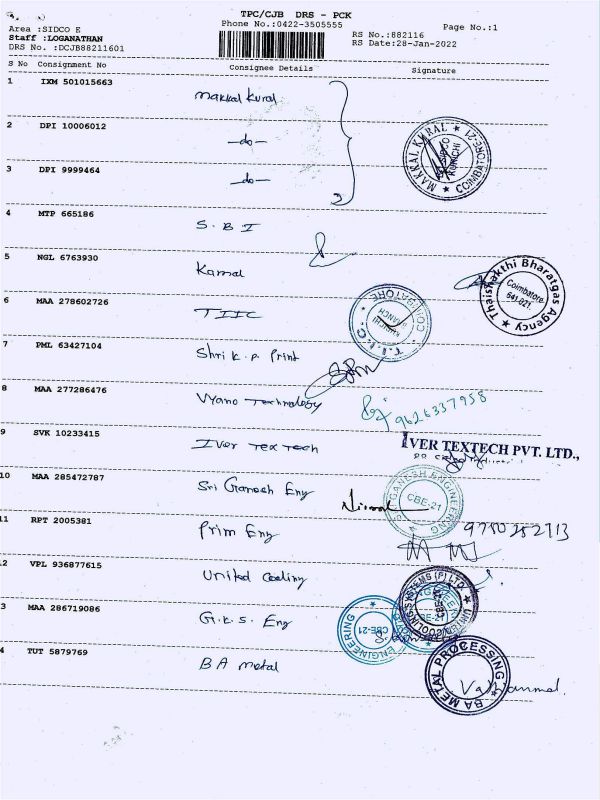 TPC/CJB DRS - PCK
Area :SIDCO E
Phone No.:0422-3505555
Page No.:1
Staff :LOGANATHAN
RS No.:882116
DRS No. :DCJB88211601
RS Date:28-Jan-2022
S No Consignment No Consignee Details Signature
1 IXM 501015663 Makkal Kural
MAKKAL KURAL ★ COIMBATORE-21 ★
KURICHI
2 DPI 10006012 —do—
3 DPI 9999464 —do—
4 MTP 665186 S.B I
5 NGL 6763930 Kamal
Thaisakthi Bharatgas Agency ★
Coimbatore
641-021.
6 MAA 278602726 TIIC
T.I.I.C. COIMBATORE
KURICHI
BRANCH
7 PML 63427104 Shri K.P Print
8 MAA 277286476 Vyano Technology 9626337958
9 SVK 10233415 Iver Tex Tech
IVER TEXTECH PVT. LTD.,
10 MAA 285472787 Sri Ganesh Eng Nirmal
SRI GANESH ENGINEERING
CBE-21
11 RPT 2005381 Prim Eng
2 VPL 936877615 United Cooling
UNITED COOLING SYSTEMS (P) LTD
CBE-21
3 MAA 286719086 G.K.S. Eng
ENGINEERING
CBE-21
4 TUT 5879769 BA Metal
BA METAL PROCESSING ★